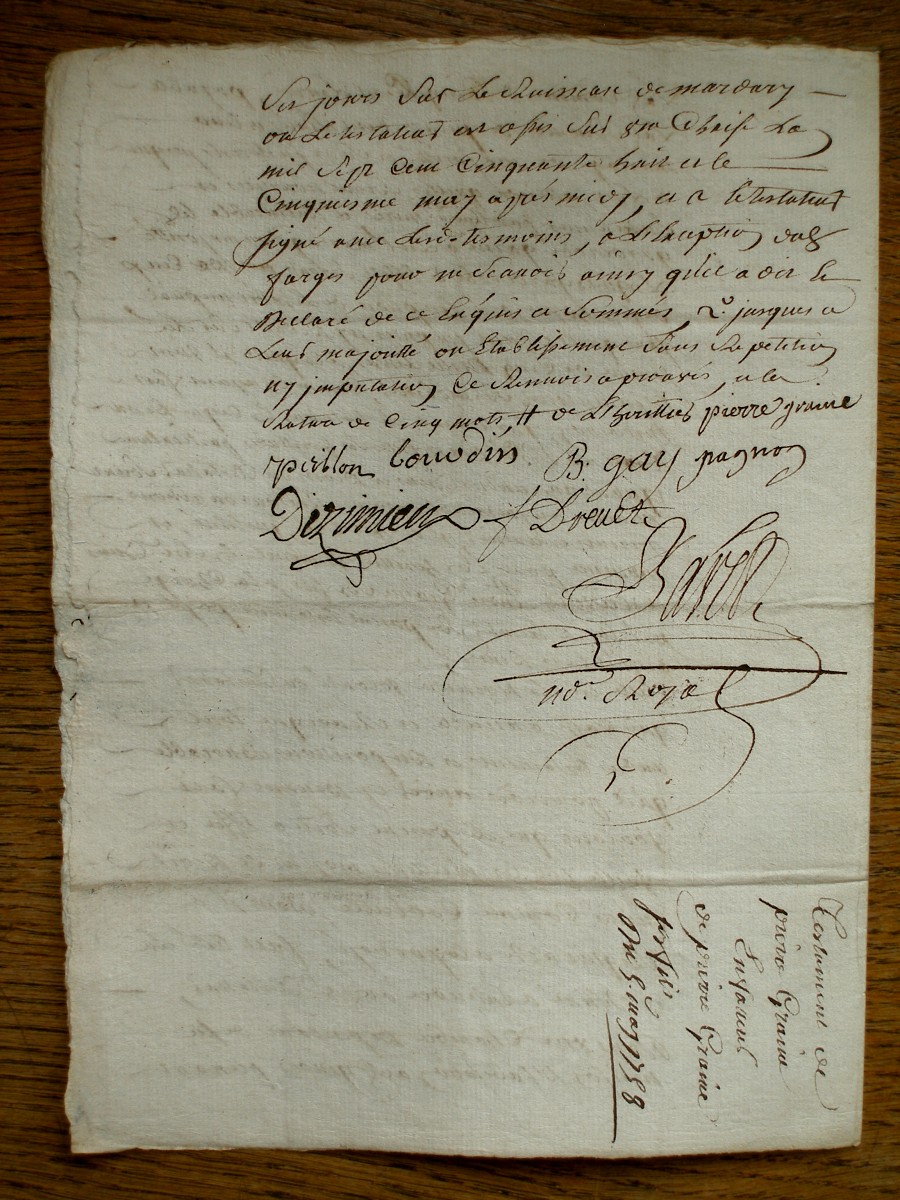 Ses jours sur le Ruisseau de mardary
ou le testateur est assis sur une Chaise La
mil Sept Cent Cinquante huit et le
Cinquiesme may après midy, et a le testateur
signé avec lesd. tesmoins, a L'Exception
farges pour ne scavoir ainsy qu'il a dit et
declaré de ce Enquis et sommés, jusques a
Leur majorité ou Etablissement sans Repetition
ny imputation Ce Renvois aprouvés, et la
Rature de Cinq mots, # de L'heritier pierre graine
peillon bourdin B. gay pagnon
Dizimieu f Drevet
Ravel
no.re Royal
Testament de
pierre Graine
Enfaveur
de pierre Graine
son fils
Du 5. may 1758